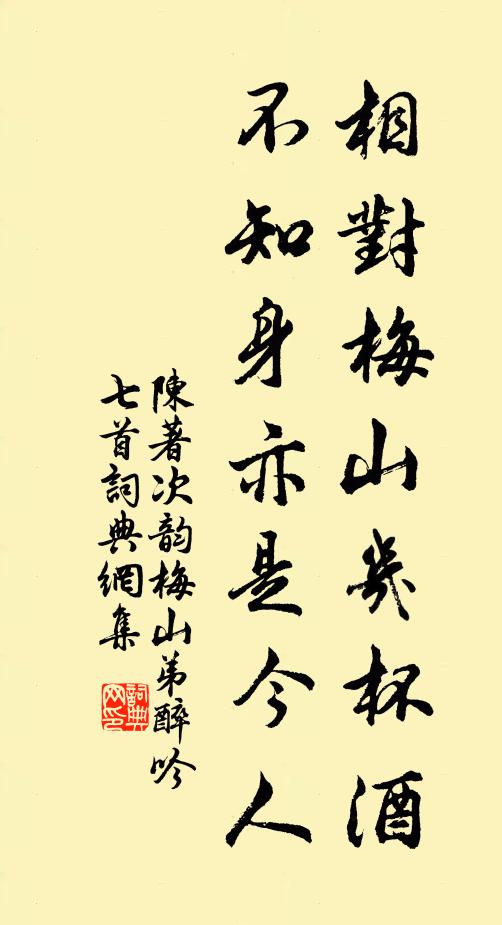 相對梅山幾杯酒
不知身亦是今人
陳著次韵梅山弟醉吟
七首詞典網集
詞典
网印